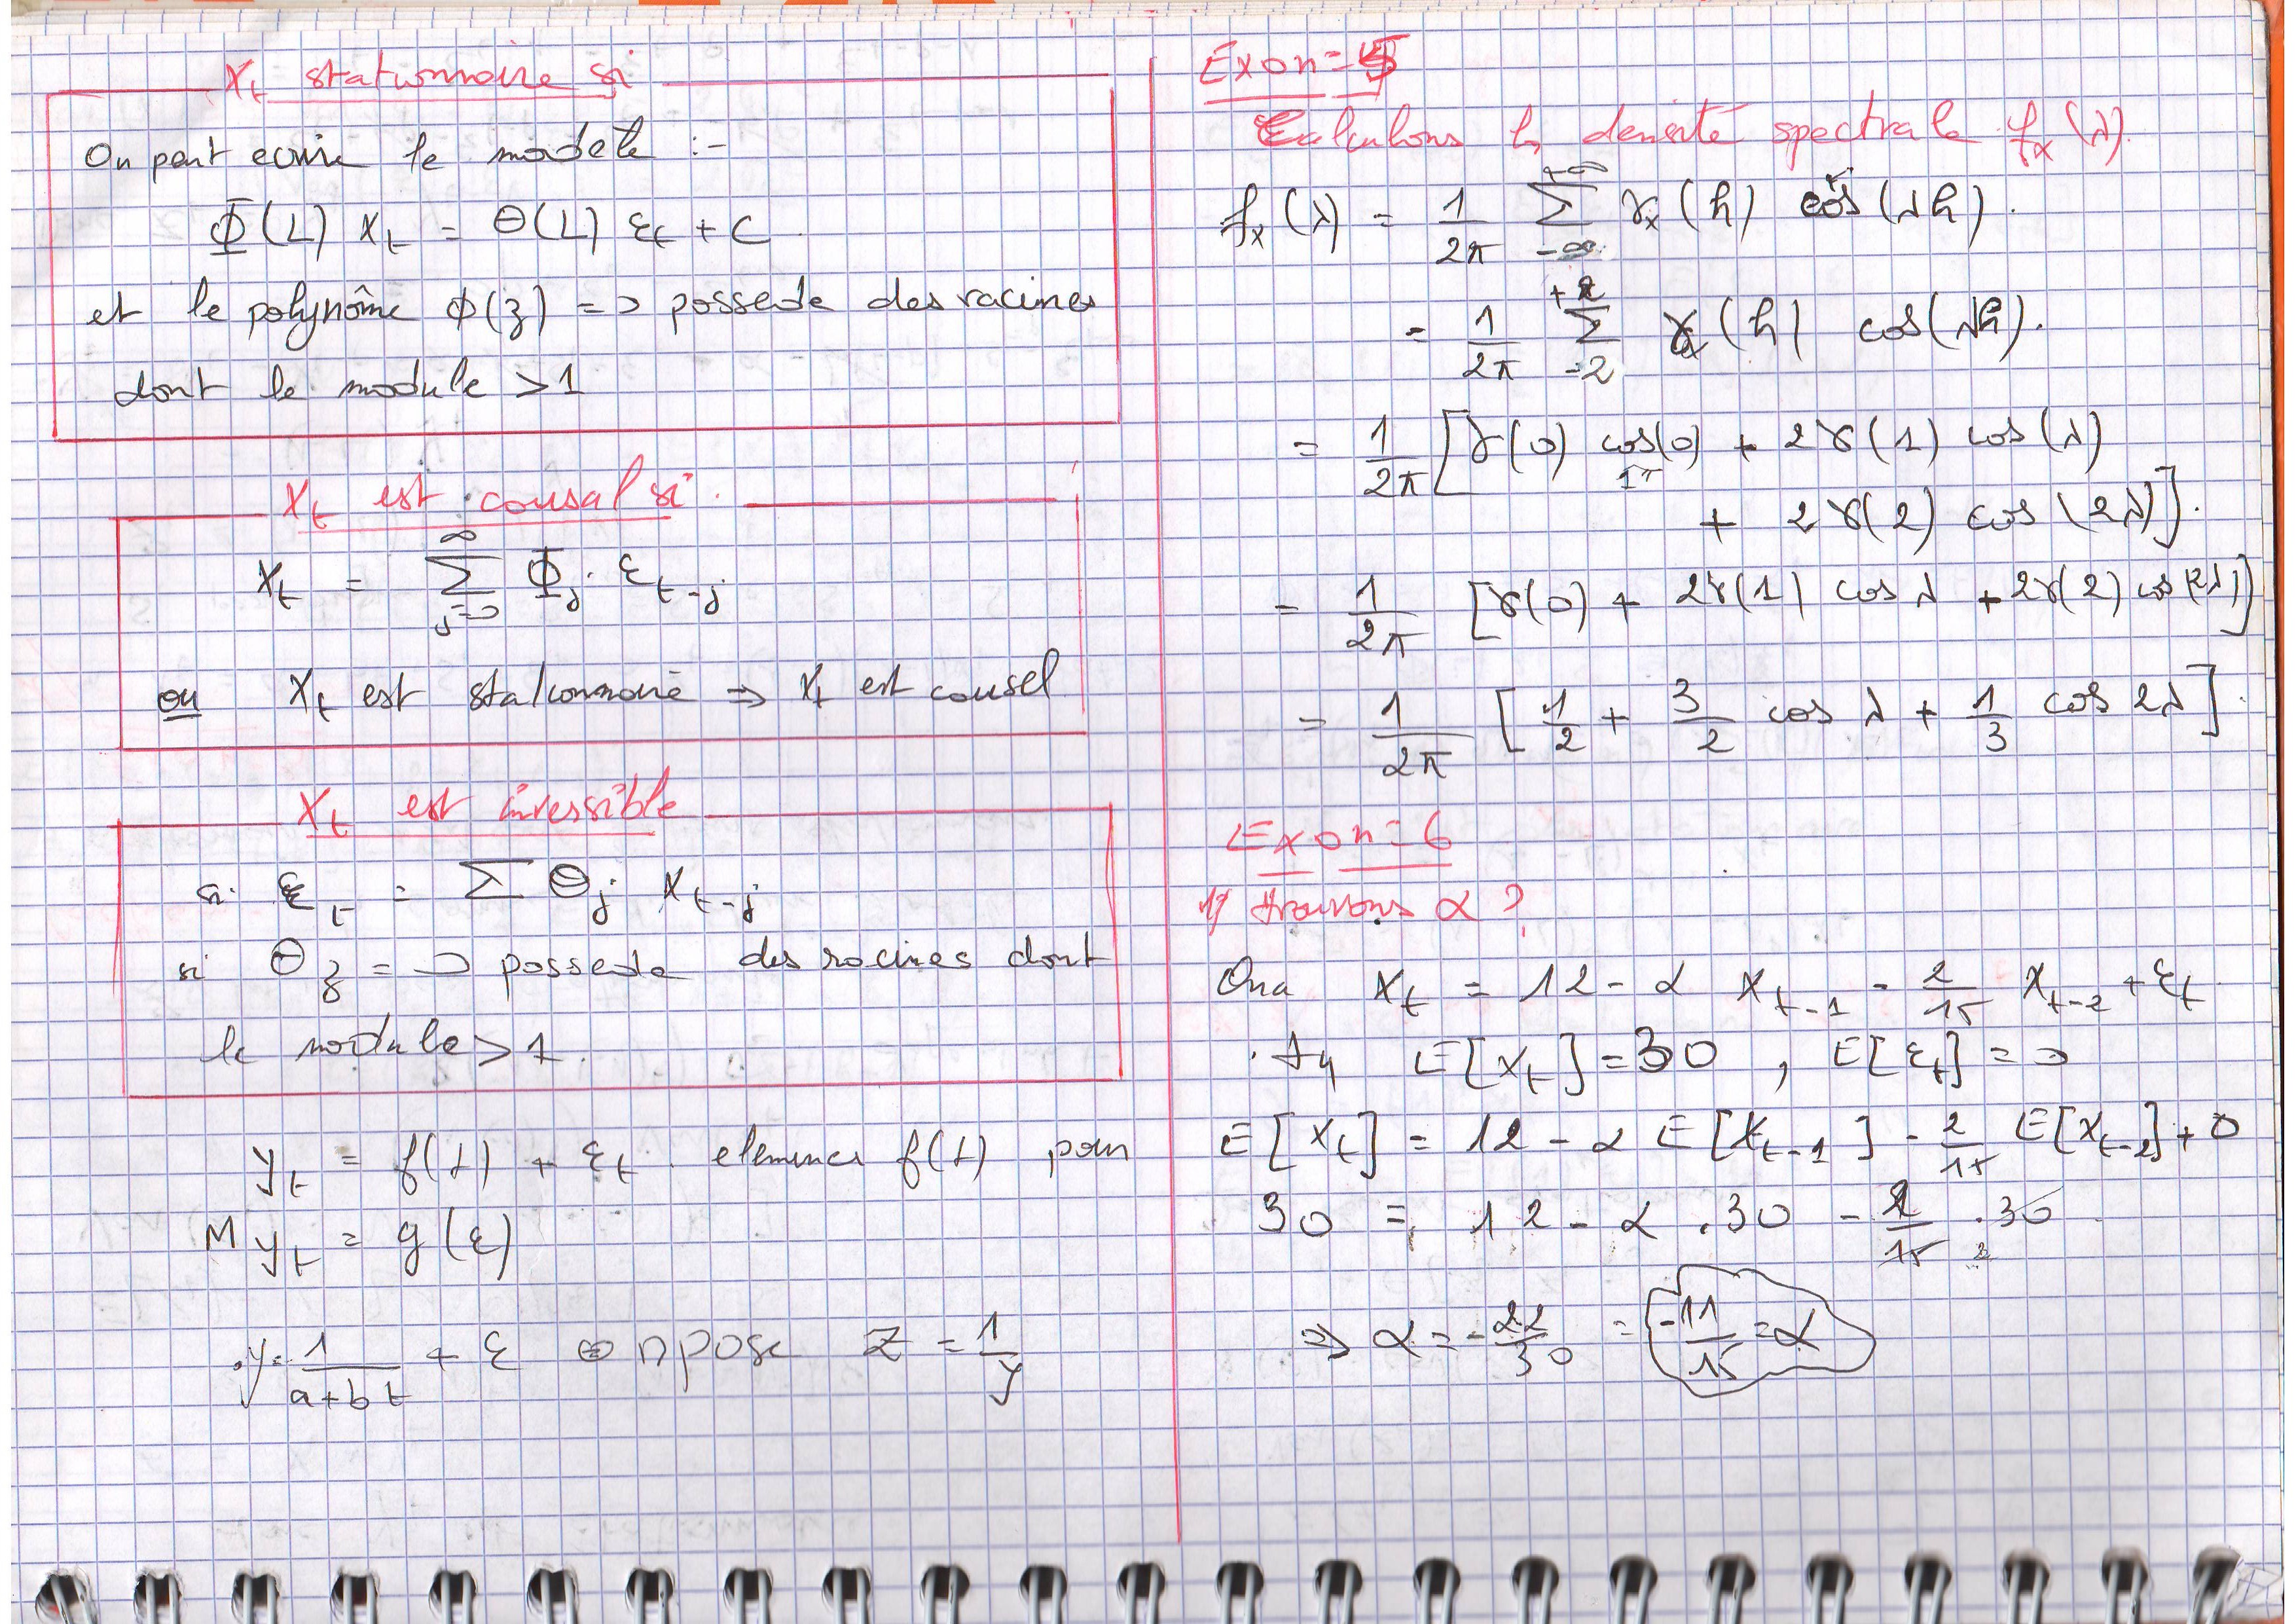 X_t stationnaire si
On peut ecrire le modele :-
Φ(L) X_t = Θ(L) ε_t + C
et le polynôme Φ(z) = 0 possede des racines
dont le module > 1
X_t est cousal si
X_t = ∑_{j=0}^{∞} Φ_j . ε_{t-j}
ou X_t est stationnaire ⇒ X_t est cousal
X_t est inressible
si ε_t = ∑ Θ_j X_{t-j}
si Θ_z = 0 possede des racines dont
le module > 1.
y_t = f(t) + ε_t . elemines f(t) pour
M y_t = g(ε)
. y = 1/(a+bt) + ε on pose z = 1/y
Exo n=5
Calculons la densité spectrale f_x(λ).
f_x(λ) = 1/2π ∑_{-∞}^{+∞} γ_x(h) cos(λh).
= 1/2π ∑_{-2}^{+2} γ_x(h) cos(λh).
= 1/2π [γ(0) cos(0) + 2γ(1) cos(λ)
+ 2γ(2) cos(2λ)].
= 1/2π [γ(0) + 2γ(1) cos λ + 2γ(2) cos(2λ)]
= 1/2π [1/2 + 3/2 cos λ + 1/3 cos 2λ].
Exo n=6
1) trouvons α ?
On a X_t = 12 - α X_{t-1} - 2/15 X_{t-2} + ε_t
. tq E[X_t] = 30 , E[ε_t] = 0
E[X_t] = 12 - α E[X_{t-1}] - 2/15 E[X_{t-2}] + 0
30 = 12 - α . 30 - 2/15 . 30
⇒ α = -22/30 = -11/15 = α